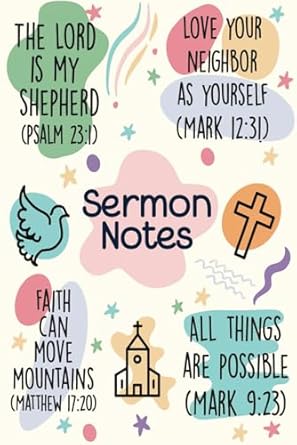 THE LORD
IS MY
SHEPHERD
(PSALM 23:1)
LOVE YOUR
NEIGHBOR
AS YOURSELF
(MARK 12:31)
Sermon
Notes
FAITH
CAN
MOVE
MOUNTAINS
(MATTHEW 17:20)
ALL THINGS
ARE POSSIBLE
(MARK 9:23)